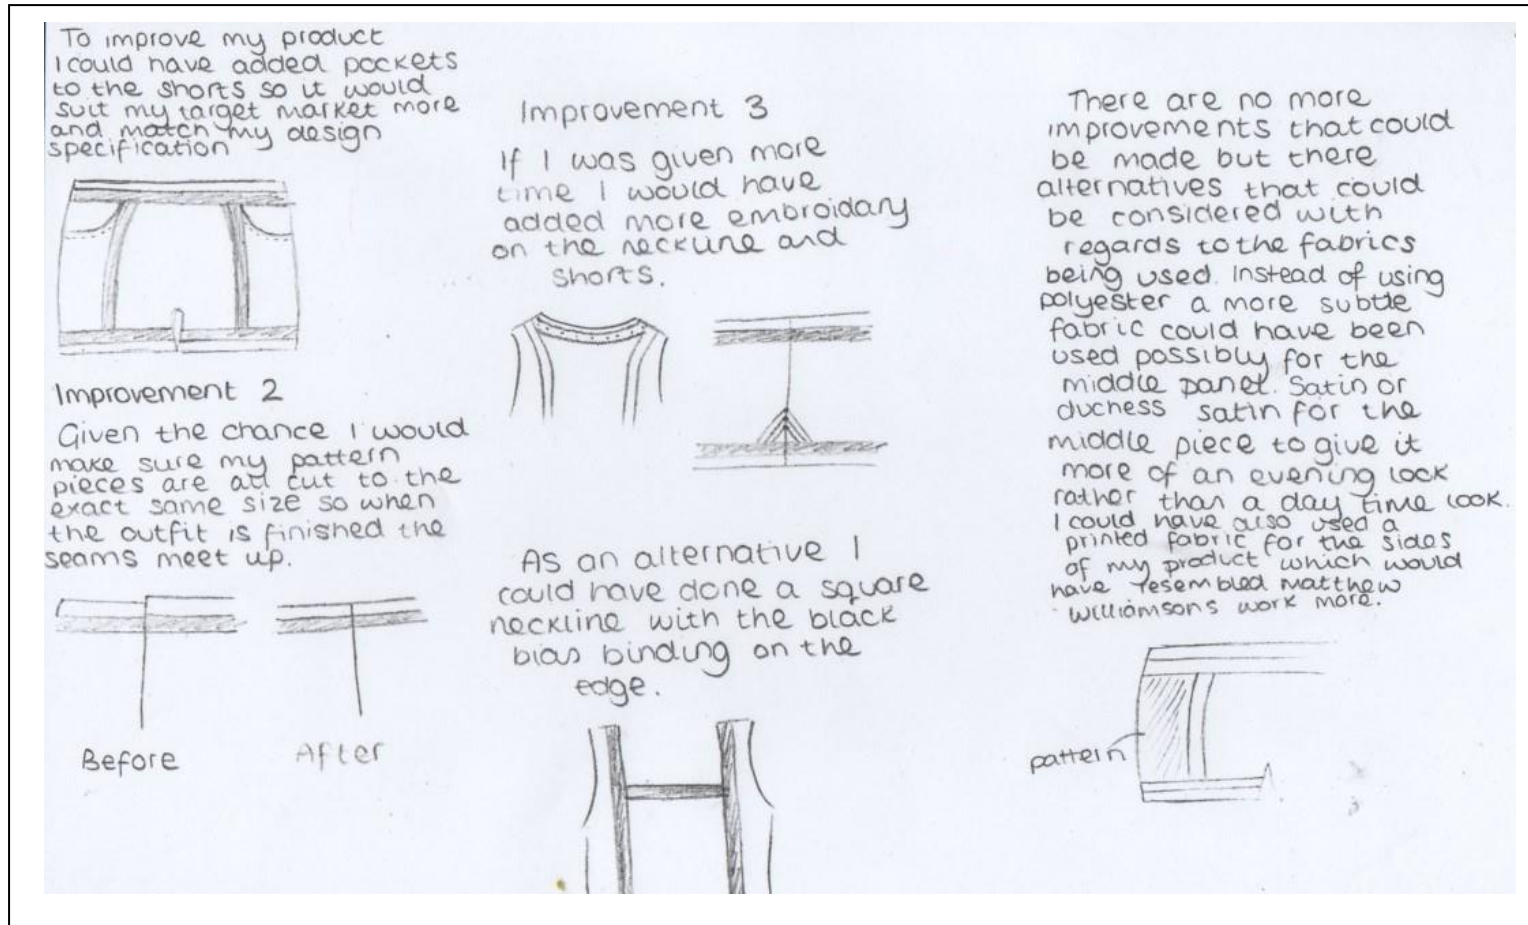 To improve my product
I could have added pockets
to the shorts so it would
suit my target market more
and match my design
specification
Improvement 2
Given the chance I would
make sure my pattern
pieces are all cut to the
exact same size so when
the outfit is finished the
seams meet up.
Before
After
Improvement 3
If I was given more
time I would have
added more embroidary
on the neckline and
shorts.
As an alternative I
could have done a square
neckline with the black
bias binding on the
edge.
There are no more
improvements that could
be made but there
alternatives that could
be considered with
regards to the fabrics
being used. Instead of using
polyester a more subtle
fabric could have been
used possibly for the
middle panel. Satin or
duchess satin for the
middle piece to give it
more of an evening look
rather than a day time look.
I could have also used a
printed fabric for the sides
of my product which would
have resembled Matthew
Williamsons work more.
pattern